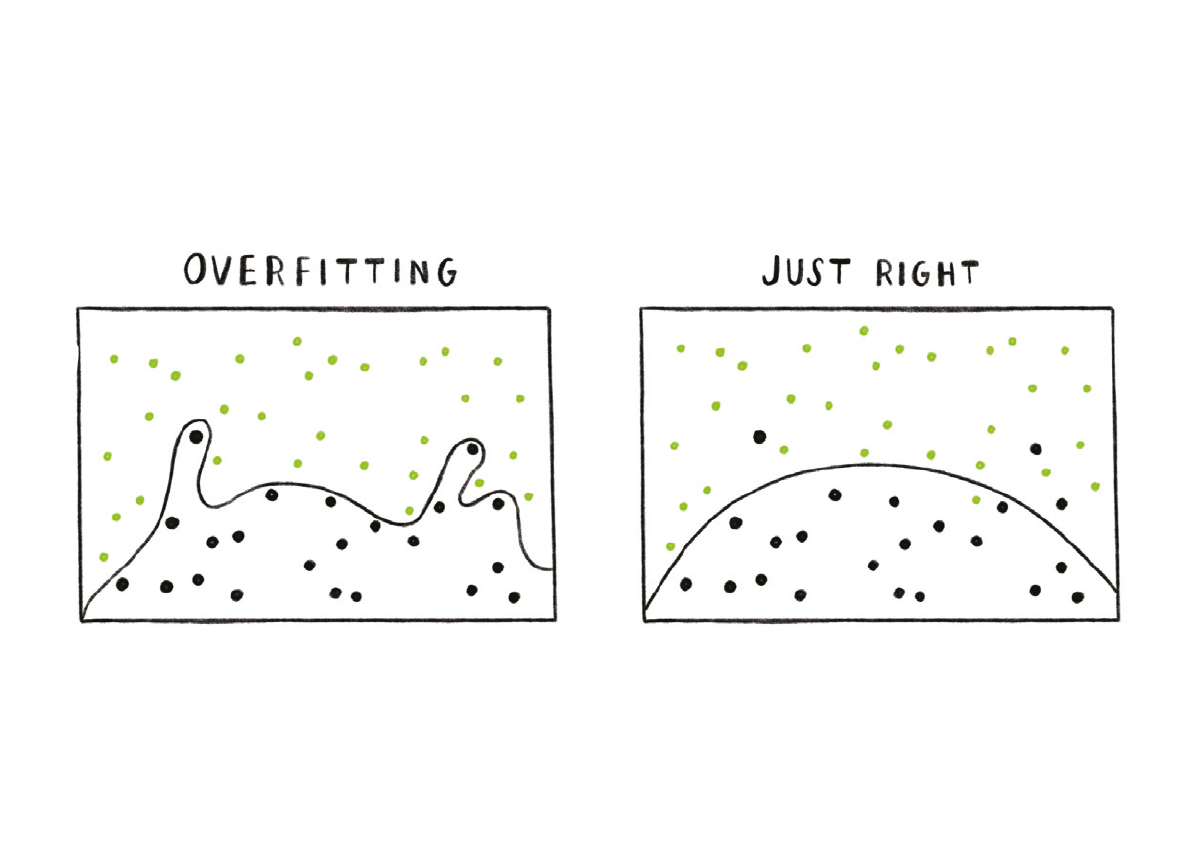 OVERFITTING
JUST RIGHT